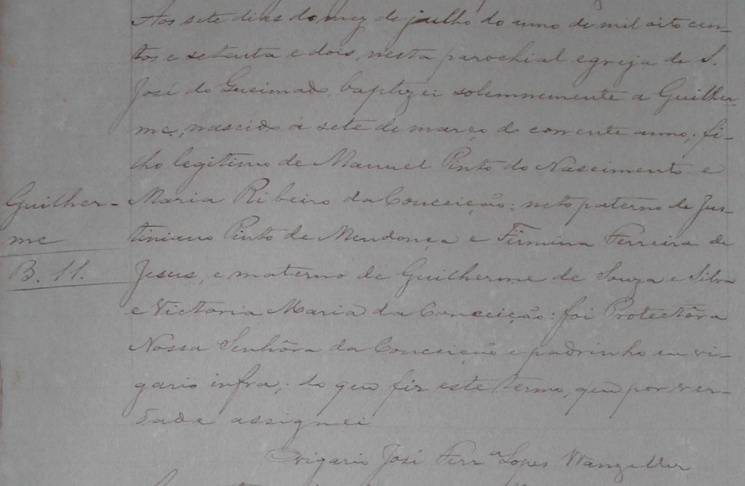 Aos sete dias do mez de julho do anno de mil oito cen-
tos e setenta e dois, nesta parochial egreja de S.
José do Queimado, baptizei solemnemente a Guilher-
me, nascido á sete de março do corrente anno; fi-
lho legitimo de Manuel Pinto do Nascimento e
Guilher-
me
B. 11.
Maria Ribeiro da Conceição; neto paterno de Jus-
tiniano Pinto de Mendonça e Firmina Ferreira de
Jesus, e materno de Guilherme de Souza e Silva
e Victoria Maria da Conceição: foi Protectôra
Nossa Senhôra da Conceição e padrinho eu vi-
gario infra; do que fiz este termo, que por ver-
dade assignei
Vigario José Ferr.ª Lopes Wanzeller